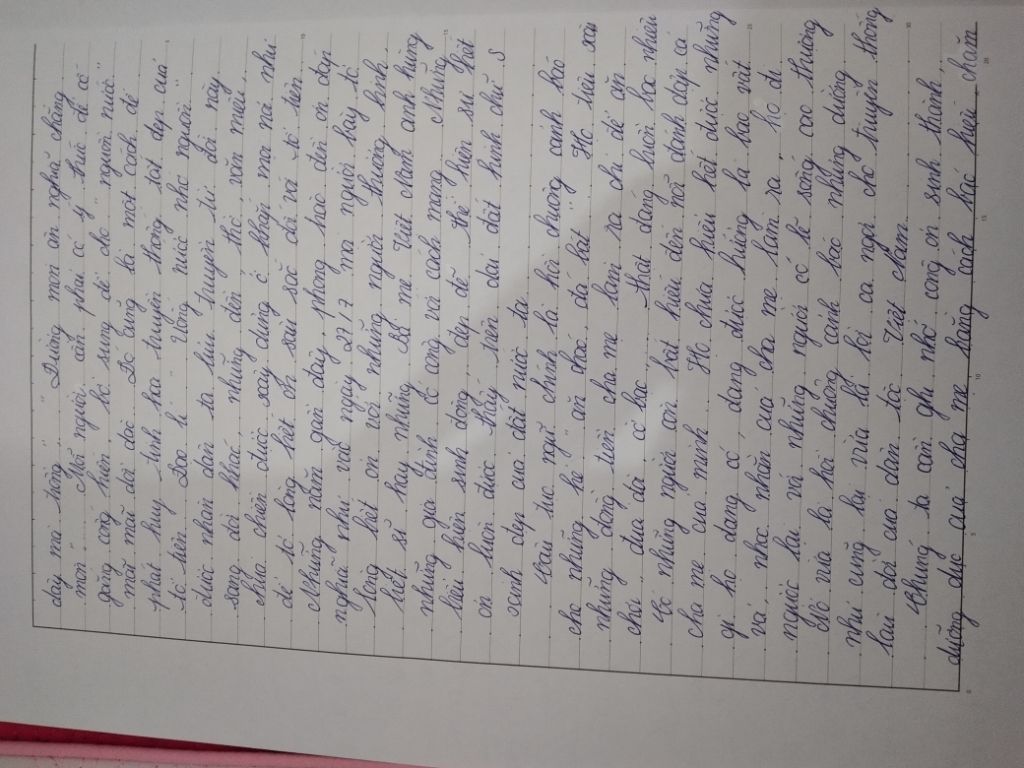 dày mà trông". "Đừng mon ăn nghĩa chẳng
mòn". Mỗi người cần phải có ý thức để cố
gắng cống hiến, bổ sung để cho "nguồn nước"
mãi mãi dồi dào. Đó cũng là một cách để
phát huy tinh hoa truyền thống tốt đẹp của
tổ tiên. Đạo lí "Uống nước nhớ nguồn"
được nhân dân ta lưu truyền từ đời này
sang đời khác, những đền thờ, văn miếu,
chùa chiền được xây dựng ở khắp mọi nơi như
để tỏ lòng biết ơn sâu sắc đối với tổ tiên
Những năm gần đây, phong học đền ơn đáp
nghĩa như với ngày 27/7 mọi người bày tỏ
lòng biết ơn với những người thương binh,
liệt sĩ hay những Bà mẹ Việt Nam anh hùng
những gia đình có công với cách mạng. Những
biểu hiện sinh động, đẹp đẽ thể hiện sự biết
ơn luôn được thấy trên dải đất hình chữ S
xinh đẹp của đất nước ta.
Câu tục ngữ chính là hồi chuông cảnh báo
cho những kẻ "ăn cháo, đá bát". Họ tiêu xài
những đồng tiền cha mẹ làm ra chỉ để ăn
chơi đua đòi cờ bạc. Thật đáng buồn bao nhiêu
Có những người còn bất hiếu đến nỗi đánh đập cả
cha mẹ của mình. Họ chưa hiểu hết được những
gì họ đang có, đang được hưởng là bao vất
vả, nhọc nhằn của cha mẹ làm ra, họ đi
ngược lại với những người có lẽ sống cao thượng
Nó vừa là hồi chuông cảnh báo những dường
như cũng lại vừa là lời ca ngợi cho truyền thống
lâu đời của dân tộc Việt Nam.
Chúng ta cần ghi nhớ công ơn sinh thành,
dưỡng dục của cha mẹ bằng cách học hiệu chăm